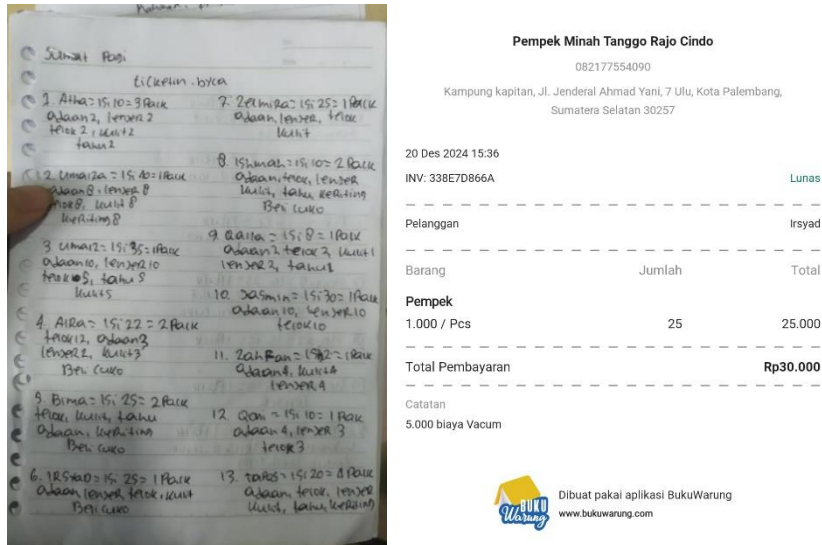 Selamat Pagi
ticketin.byca
1. Atha = isi 10 = 3 Pack
adaan 2, lenjer 2
telok 2, kulit 2
tahu 2
2. Umaiza = isi 40 = 1 Pack
adaan 8, lenjer 8
telok 8, kulit 8
keriting 8
3. Umair = isi 35 = 1 Pack
adaan 10, lenjer 10
telok 5, tahu 5
kulit 5
4. AIRa = isi 22 = 2 Pack
telok 12, adaan 3
lenjer 2, kulit 3
Beri cuko
5. Bima = isi 25 = 2 Pack
telok, kulit, tahu
adaan, keriting
Beri cuko
6. IRSYaD = isi 25 = 1 Pack
adaan lenjer telok, kulit
Beri cuko
7. Zelmira = isi 25 = 1 Pack
adaan, lenjer, telok
kulit
8. Ishmah = isi 10 = 2 Pack
adaan, telok, lenjer
kulit, tahu keriting
Beri cuko
9. Qaila = isi 8 = 1 Pack
adaan 2 telok 2, kulit 1
lenjer 2, tahu 1
10. Jasmin = isi 30 = 1 Pack
adaan 10, lenjer 10
telok 10
11. Zahran = isi 12 = 1 Pack
adaan 4, kulit 4
lenjer 4
12. Qoni = isi 10 = 1 Pack
adaan 4, lenjer 3
telok 3
13. = isi 20 = 4 Pack
adaan, telok, lenjer
kulit, tahu, keriting
Pempek Minah Tanggo Rajo Cindo
082177554090
Kampung kapitan, Jl. Jenderal Ahmad Yani, 7 Ulu, Kota Palembang,
Sumatera Selatan 30257
20 Des 2024 15:36
INV: 338E7D866A Lunas
Pelanggan Irsyad
Barang Jumlah Total
Pempek
1.000 / Pcs 25 25.000
Total Pembayaran Rp30.000
Catatan
5.000 biaya Vacum
BUKU
Warung
Dibuat pakai aplikasi BukuWarung
www.bukuwarung.com